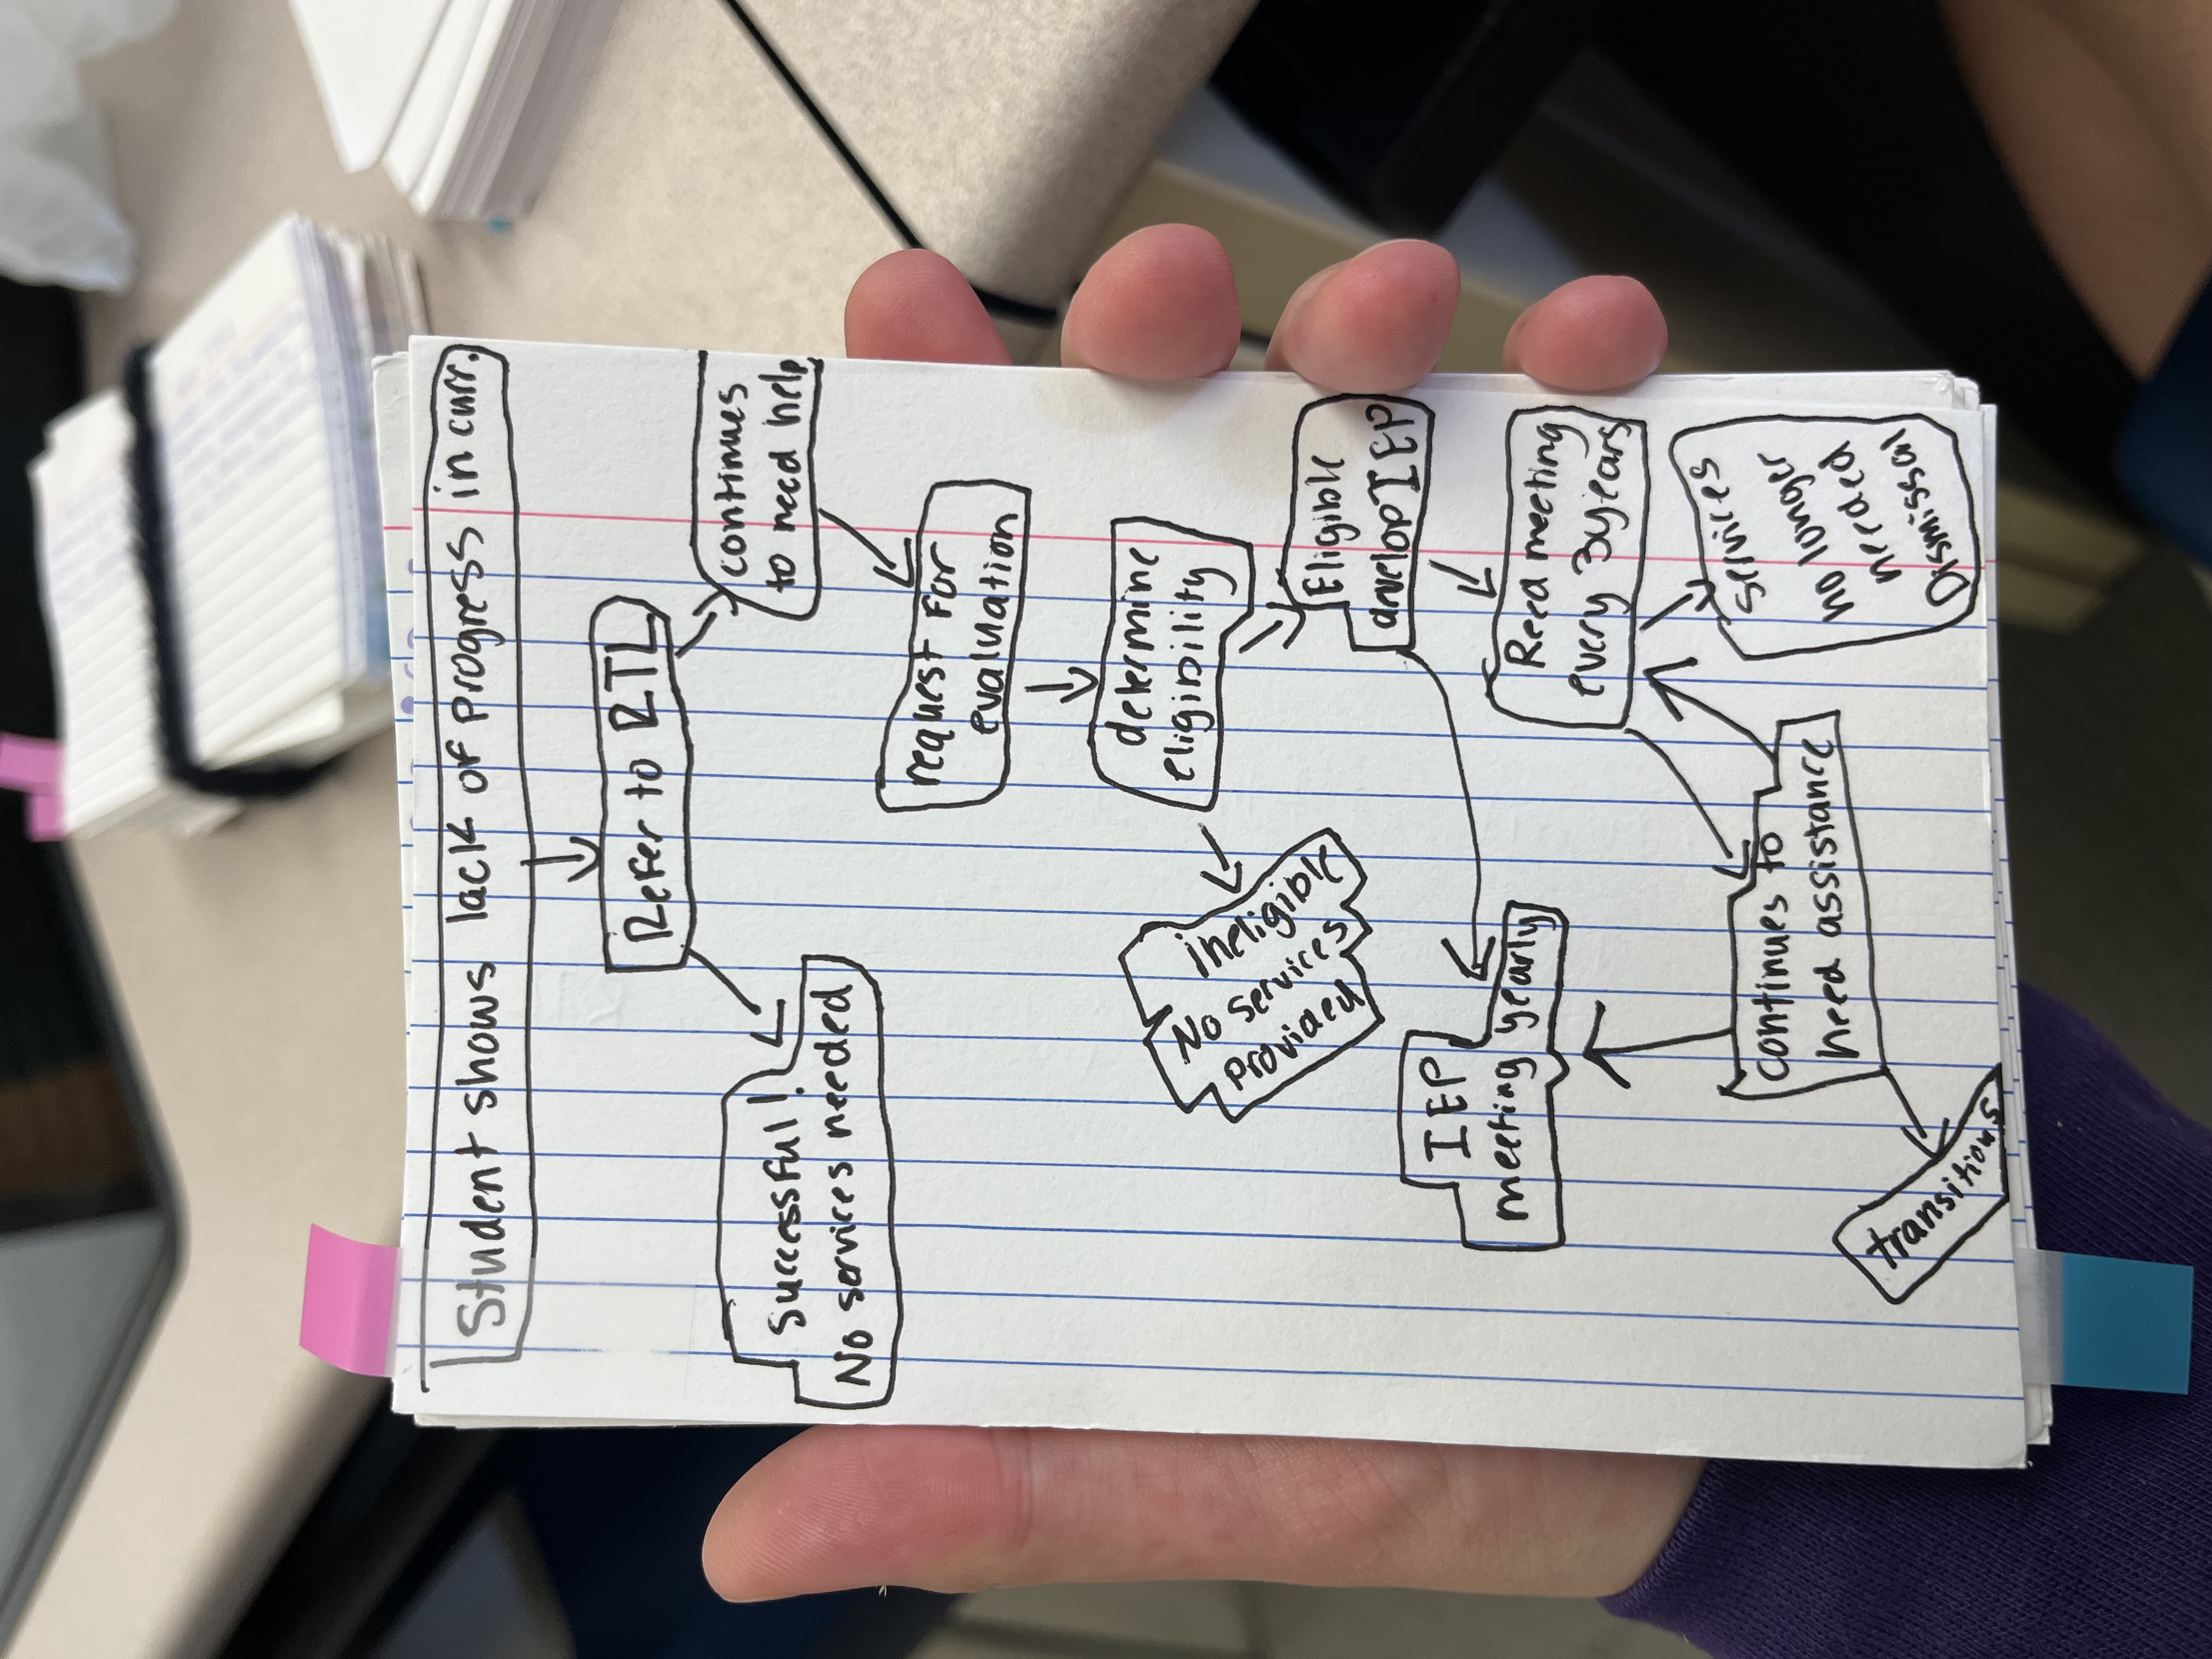 Student shows lack of progress in curr.
Refer to RTI
continues
to need help
Successful!
No services needed
request for
evaluation
determine
eligibility
Eligible
develop IEP
ineligible
No services
Provided
IEP
meeting yearly
Reed meeting
every 3years
continues to
need assistance
services
no longer
needed
Dismissal
transitions